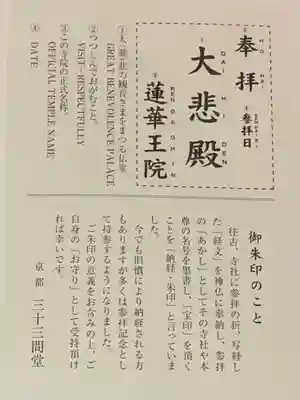 奉拝
HO HAI
④参拝日
SAN PAI BI
大悲殿
DAI HI DEN
蓮華王院
REN GE OH IN
①大慈悲の観音さまをまつる仏堂
GREAT BENEVOLENCE PALACE
②つつしんでおがむこと。
VISIT-RESPECTFULLY
③この寺院の正式名称。
OFFICIAL TEMPLE NAME
④
DATE
御朱印のこと
往古、寺社に参拝の折、写経し
た「経文」を神仏に奉納し、参拝
の「あかし」としてその寺社や本
尊の名号を墨書し、「宝印」を頂く
ことを「納経・朱印」と言っていま
した。
今でも旧慣により納経される方
もありますが多くは参拝記念とし
て持参するようになりました。
ご朱印の意義をお含みの上、ご
自身の「お守り」として受持頂け
れば幸いです。
京都 三十三間堂